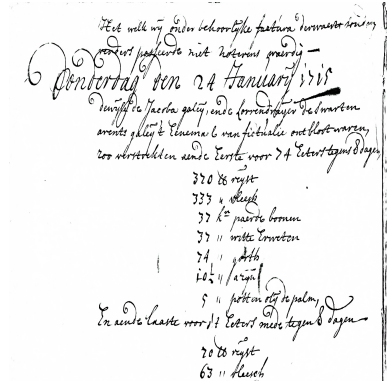 Het welk wij onder behoorlijke factura
verders passeerde niet noterens waerdig
Donderdag den 24 Januarij 1715
dewijl de Jacoba galeij, ende de swarten
arents galeij t van fictualie ontbloot waren,
zoo verstrekten aende Eerste voor 74 Eeters tegens 8 dagen,
370 lb rijst
333 " vleesch
37 paerde boonen
37 " witte Erweten
74 " gorth
10½ " azijn
5 " potten olij de palm,
En aende laatste voor Eeters mede tegen 8 dagen
70 lb rijst
63 " vleesch